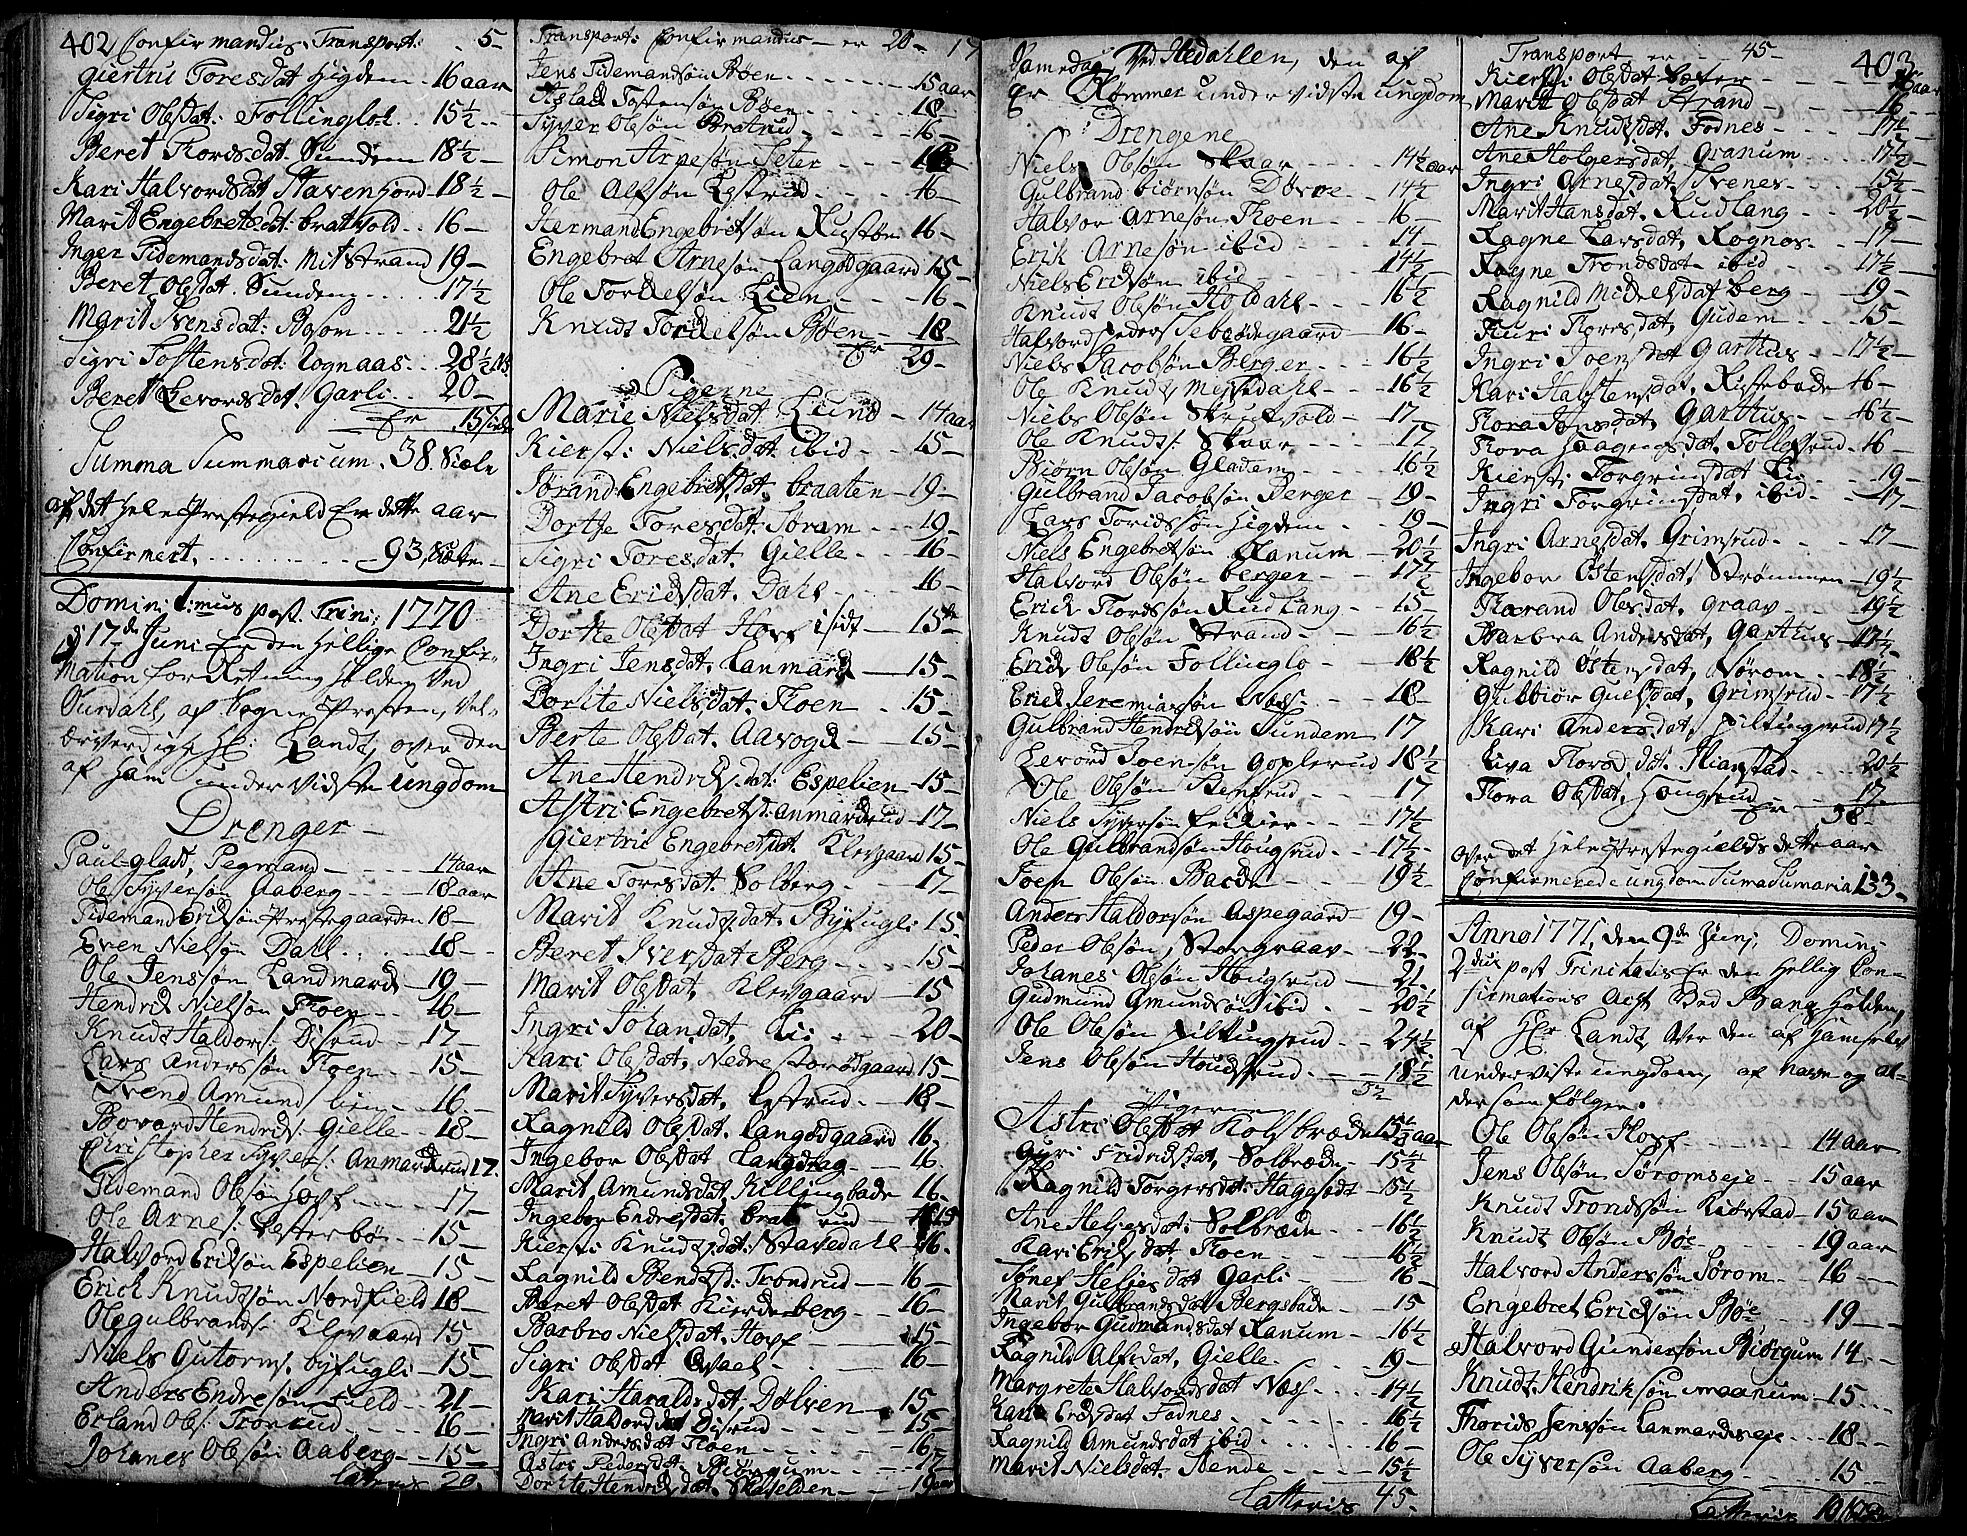 402 Confirmandus, Transport: 5-
Giertru Toresdat Higdem - 16 aar
Sigri Olsdat: Follinglok 15½ --
Beret Tordsdat. Sundem 18½ -
Kari Halvordsdat Stavenjord 18½ -
Marit Engebretsdat: bratvold 16 -
Inger Tidemandsdat: Mitstrand 19 -
Beret Olsdat. Sundem 17½
Marit Svensdat: Bosom 21½
Sigri Tostensdat: Rognaas 28½
Beret Levordsdat. Garli 20 -
Er 15
Summa Summarium. 38 Siæle
af det heele Præstegield Er dette aar
Confirmert. 93, Siæle
Domin: 1:mus post Trini: 1770
d 17de Juni Er den hellige Confir-
mation forRetning holden Ved
Ourdahl, af Sogne Præsten, Vel-
ærverdige Hr: Landt, over den
af ham underviste ungdom
Drenger
Paul glad, Pegmand - 14 aar
Ole Syversøn Aaberg - 18 aar
Tidemand Erichsøn Præstegaarden 18 -
Even Nielsøn Dahl 18 -
Ole Jenssøn Landmark 19 -
Hendrich Nielsøn Floen 16 -
Knudt Haldors: Disrud 17 -
Lars Anderssøn Floen 15 -
Svend Amunds: lien 16 -
Bovard Hendrichs: Gielle 18
Christopher Syvers: Anmarchrud 17.
Tidemand Olsøn Hoff 17 -
Ole Arnes: Østerbø 15 -
Halvord Erichsøn Espelien 15 -
Erich Knudtsøn Nordfield 18 -
Ole gulbrands: Klevgaard 15 -
Niels Gutorms: byfugli 15 -
Anders Endresøn Field 21 -
Erland Ols: Tronrud 16 -
Johanes Olsøn Aaberg - 15 -
Latteris 20.
Transport: Confirmandus - er 20 -
Jens Tidemandsøn Bøen 15 aar
Aslak Tostensøn Bøen 18
Syver Olsøn Bratrud 16 -
Simon Arnesøn Seter
Ole Alfsøn Lestrud 16 -
Herman Engebretsøn Rustøe 16 -
Engebret Arnesøn Langodgaard 15 -
Ole Torchelsøn Lien 16 -
Knudt Torchelsøn Bøen 18
Er 29 -
Pigerne
Marie Nielsdat. Lund - 14 aar
Kiersti Nielsdat. ibid - 15 -
Jørand Engebretsdat, braaten - 19 -
Dorthe Toresdat: Sorum 19 -
Sigri Toresdat. Gielle 16 -
Ane Erichsdat. Dahl 16 -
Dorthe Olsdat Hoff 15
Ingri Jensdat. Lanmark - 15 -
Dorthe Nielsdat. Floen 15 -
Berte Olsdat. Aavogd - 15 -
Ane Hendrichsdat: Espelien - 15 -
Astri Engebretsd: Anmarchrud - 17 -
Giertri Engebretsdat Klevgaard 15 -
Ane Toresdat. Solberg 17 -
Marit Knudsdat. Byfugli 15 -
Beret Iversdat Berg 15 -
Marit Olsdat, Klevgaard 15
Ingri Johandat, Lii 20 -
Kari Olsdat, Nedre storødgaard 15 -
Marit Syversdat, Lestrud - 18 -
Ragnild Olsdat. Langodgaard 16
Ingebor Olsdat Langdrag 16
Marit Amundsdat, Killingbade 16
Ingebor Endresdat. brat rud
Kiersti Knudsdat: Stavedahl 16
Ragnild Bendtsd: Trondrud - 16 -
Beret Olsdat Kierdeberg - 16 -
Barbro Nielsdat. Hoff - 15 -
Sigri Olsdat Qvael - 16 -
Kari Haraldsdat, Dølven 15 -
Marit Haldordsdat Disrud - 15 -
Ingri Andersdat Floen 16
Astri Pedersdat Biørgum 17
Dorthe Hendrichsdat, Skavelden - 19
Samedag Ved Hedahlen, den af
Er Rommer underviste ungdom
Drengene
Niels Olsøn Skaar 14½ aar
Gulbrand Biørnsøn Dørve 14½
Halvor Arnesøn Floen 16 -
Erik Arnesøn ibid 14 -
Niels Erichsøn ibid 14½
Knudt Olsøn Holdahl 16½
Halvord Peders: Sebødegaard 16 -
Niels Jacobsøn Berger 16½
Ole Knuds: Messedahl 16½
Niels Olsøn Skrutvold 17
Ole Knudts: Skaar 17
Biørn Olsøn Gladem 16½
Gulbrand Jacobsøn Berger 19 -
Lars Toridssøn Higdem 19 -
Niels Engebretsøn Ranum - 20½
Halvord Olsøn berger 17½
Erich Tordssøn Rudlang - 15 -
Knudt Olsøn Strand 16½
Erich Olsøn Follinglo 18½
Erich Jeremiassøn Næs 18
Gulbrand Hendrichsøn Sundem 17
Levord Joensøn Goplerud 18½
Ole Olsøn Stensrud 17
Niels Syversøn Erikier 17½
Ole Gulbrandsøn Hougsrud 17½
Joen Olsøn Backe 19½
Anders Haldorsøn Aspegaard 19 -
Peder Olsøn, Storgraav 22 -
Johanes Olsøn Hougsrud 21 -
Gudmund Amundsøn ibid 20½
Ole Olsøn Piltingsrud 24½
Jens Olsøn Houdsrud 18½
Pigerne
Astri Olsdat Kolsbræde 15½ aar
Guri Fridrichsdat, Solbræde - 15½
Ragnild Torgersdat: Hagesødt 15½
Ane Helgesdat: Solbræde 16½
Kari Erichsdat Floen 16½
Jønef Helgesdat Garli 16 -
Marit Gulbrandsdat Bergsbade 15
Ingebor Gudmandsdat Ranum 16½
Ragnild Alfsdat, Gielle 19 -
Margrete Halvordsdat Næss 14½
Kari Erichsdat Fodnes 16½
Ragnild Amundsdat ibid 16 -
Marit Nielsdat. Stende 15½
Latteris 45 -
Transport er 45 - 403
Kiersti Olsdat Sæter
Marit Olsdat Strand 16
Ane Knudsdat, Fodnes 17½
Ane Holgersdat, Granum 17½
Ingri Arnesdat, Ivenes 15½
Marit Hansdat. Rudlang 20½
Ragne Larsdat, Rognos 17 -
Ragne Trondsdat ibid 17½
Ragnild Michelsdat berg 19 -
Turi Toresdat, Gudem 15 -
Ingri Joensdat Garthus 17½
Kari Halstensdat, Ristebade 16 -
Tora Jonsdat. Garthus 16½
Tora Haagensdat. Follesrud 16
Kiersti Torgrinsdat Lii 19 -
Ingri Torgrimsdat, ibid 17 -
Ingri Arnesdat. Grimsrud 17 -
Ingebor Østensdat, Strømmen 19½
Tharand Olsdat. graav 19½
Barbra Andersdat, Garthus 17½
Ragnild Østensdat, Nørom 18½
Gulbiør Gulsdat, Grimsrud 17½
Kari Andersdat, Piltingsrud 17½
Liva Tordsdat. Skianstad 20½
Tora Olsdat, Hougsrud 17
Er 38 -
Over det heele Præstegields dette aar
Confirmerede ungdom Suma Sumaria 133 -
Anno 1771, den 9de Junj, Doming
2dus post Trinitatis Er den hellig Con-
firmations Act Ved Bang holden,
af Hr Landt Over den af hamselv
underviste ungdom, af navn og al-
der som følger.
Ole Olsøn Hoff 14 aar
Jens Olsøn Søromseje 15 aar
Knudt Trondsøn Kiørstad 15 aar
Knudt Olsøn Bøe 19 aar
Halvord Anderssøn Sørom 16
Engebret Erichsøn Bøe 19
Halvord Gundersøn Biørgum 14
Knudt Hendrichsøn Maanum 15
Thorids Jenssøn Lanmarchseje 18 -
Ole Syversøn Aaberg 15
Latteris 10